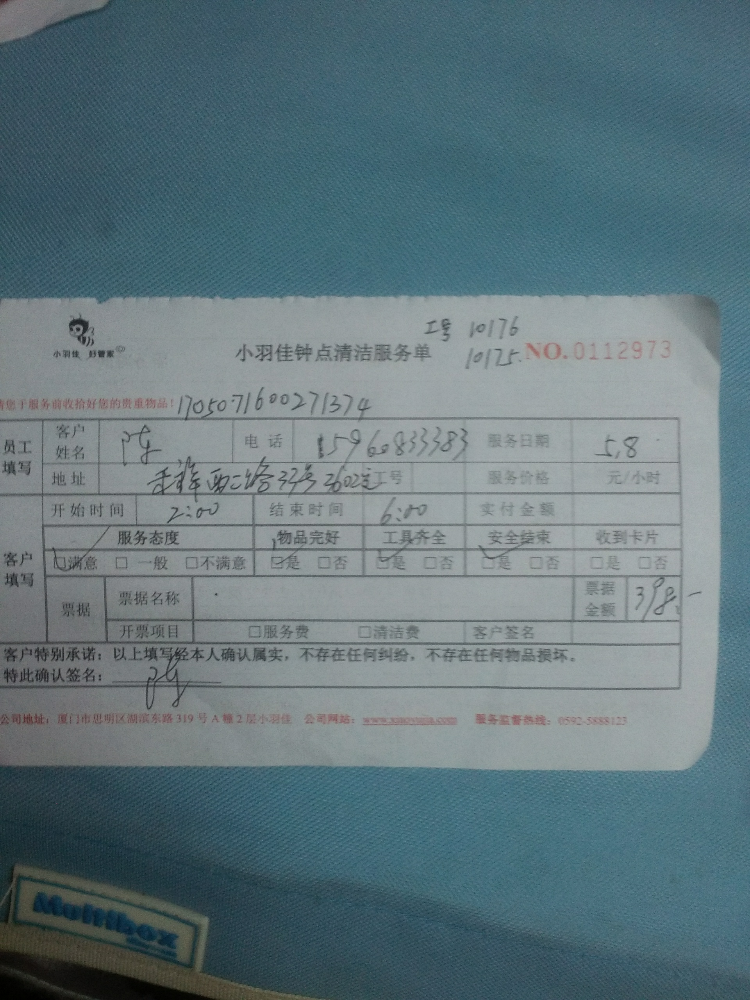 工号 10176
小羽佳 好管家
小羽佳钟点清洁服务单
10175.
NO.0112973
请您于服务前收拾好您的贵重物品! 1705071600271374
员工填写 客户姓名 陈 电话 15960833383 服务日期 5.8
地址 西二路33号2602室 工号 服务价格 元/小时
客户填写 开始时间 2:00 结束时间 6:00 实付金额
服务态度 物品完好 工具齐全 安全结束 收到卡片
□满意 □一般 □不满意 □是 □否 □是 □否 □是 □否 □是 □否
票据 票据名称 票据金额 398.-
开票项目 □服务费 □清洁费 客户签名
客户特别承诺:以上填写经本人确认属实,不存在任何纠纷,不存在任何物品损坏。
特此确认签名: 陈
公司地址:厦门市思明区湖滨东路 319 号 A 幢 2 层小羽佳 公司网站:www.xiaoyujia.com 服务监督热线:0592-5888123
Multibox